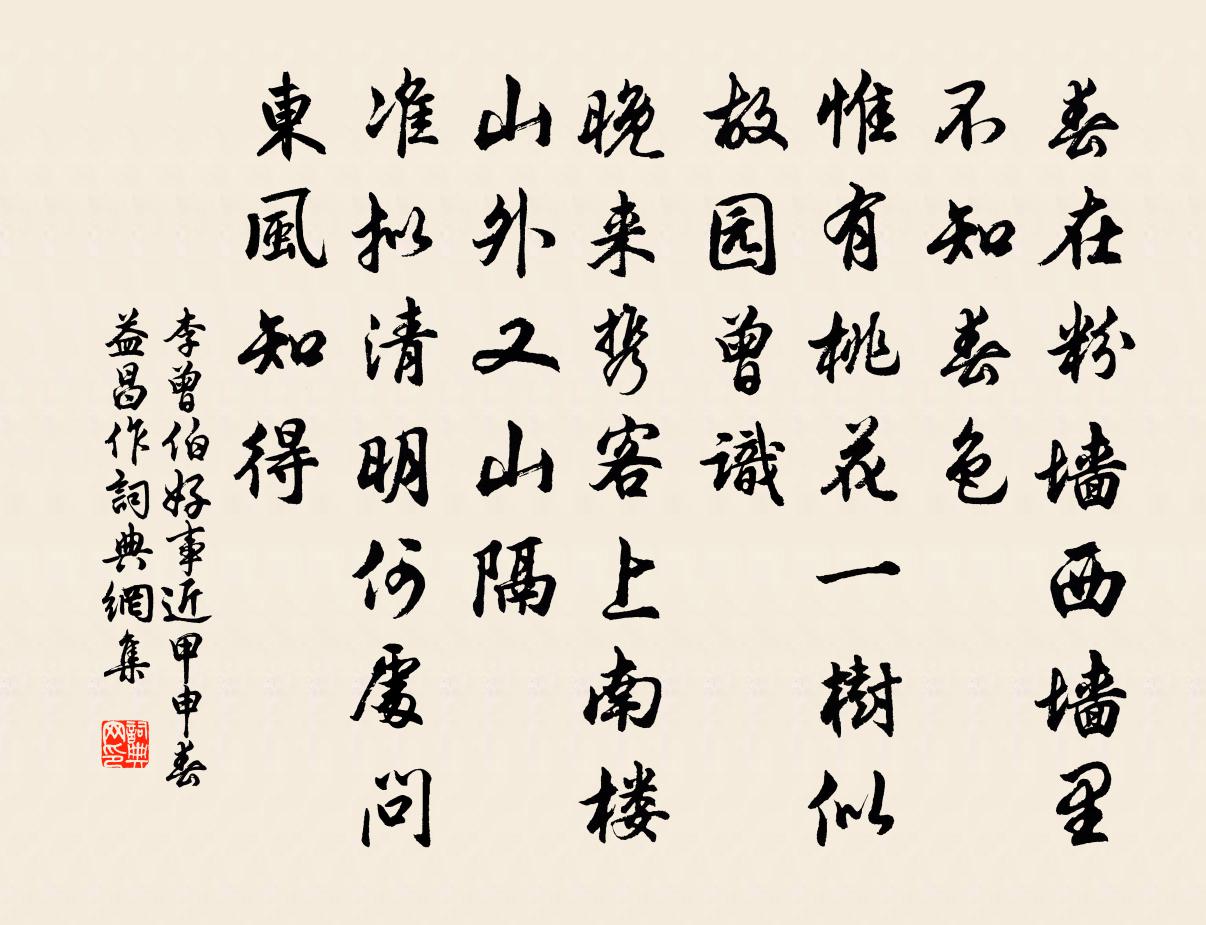 春在粉墙西墙里
不知春色
惟有桃花一樹似
故园曾識
晚来携客上南楼
山外又山隔
准拟清明何處問
東風知得
李曾伯好事近甲申春
益昌作詞典網集
詞典网印